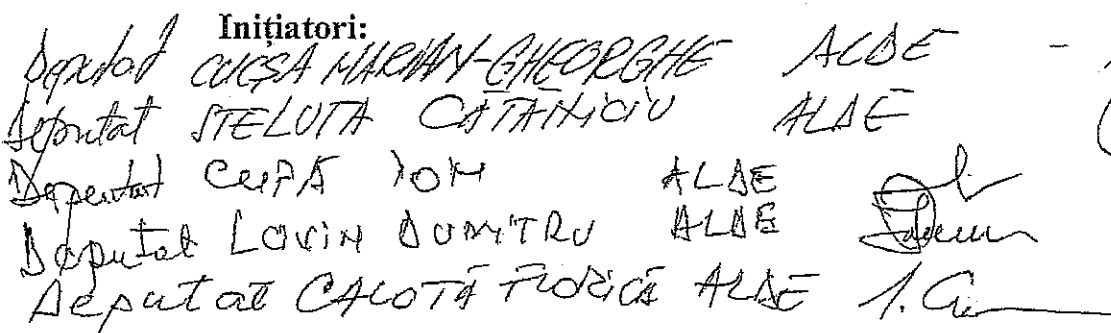 Inițiatori:
Deputat CUCȘA MARIAN-GHEORGHE ALDE -
Deputat STELUȚA CĂTĂNICIU ALDE
Deputat CUPĂ ION ALDE
Deputat LOVIN DUMITRU ALDE
Deputat CALOTĂ FLORICĂ ALDE